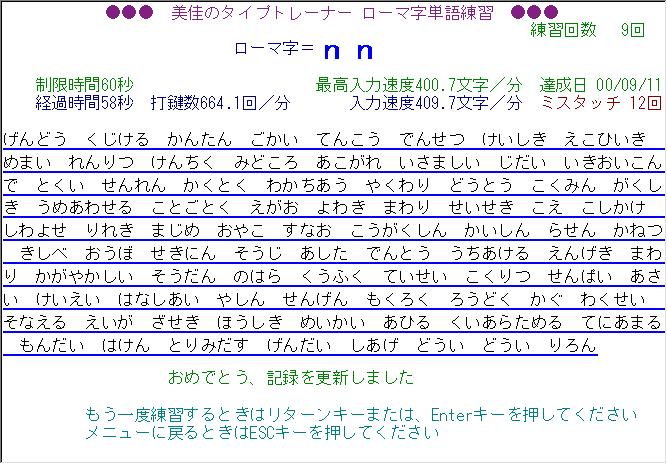 ●●● 美佳のタイプトレーナー ローマ字単語練習 ●●●
練習回数 9回
ローマ字＝ n n
制限時間60秒 最高入力速度400.7文字／分 達成日 00/09/11
経過時間58秒 打鍵数664.1回／分 入力速度409.7文字／分 ミスタッチ 12回
げんどう くじける かんたん ごかい てんこう でんせつ けいしき えこひいき
めまい れんりつ けんちく みどころ あこがれ いさましい じだい いきおいこん
で とくい せんれん かくとく わかちあう やくわり どうとう こくみん がくし
き うめあわせる ことごとく えがお よわき まわり せいせき こえ こしかけ
しわよせ りれき まじめ おやこ すなお こうがくしん かいしん らせん かねつ
きしべ おうぼ せきにん そうじ あした でんとう うちあける えんげき まわ
り かがやかしい そうだん のはら くうふく ていせい こくりつ せんぱい あさ
い けいえい はなしあい やしん せんげん もくろく ろうどく かぐ わくせい
そなえる えいが ざせき ほうしき めいかい あひる くいあらためる てにあまる
もんだい はけん とりみだす げんだい しあげ どうい どうい りろん
おめでとう、記録を更新しました
もう一度練習するときはリターンキーまたは、Enterキーを押してください
メニューに戻るときはESCキーを押してください